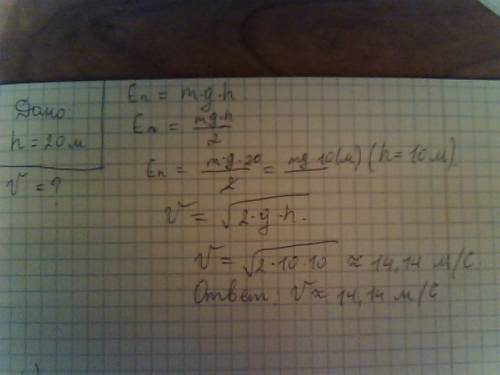 Дано:
h = 20м
V = ?
Eп = m·g·h.
Eп = mg·h/2
Eп = m·g·20/2 = mg·10(м) (h = 10м)
V = √2·g·h.
V = √2·10·10 ≈ 14,14 м/с
Ответ: V ≈ 14,14 м/с